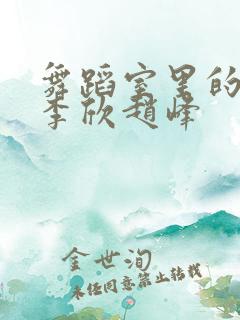 舞蹈室里的
李欣赵峰
金世洵
未经同意禁止转载